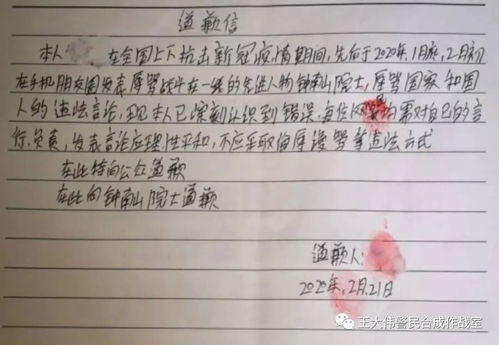 道歉信
本人 在全国上下抗击新冠疫情期间,先后于2020年.1月底,2月初
在手机朋友圈发表辱骂战斗在一线的先进人物钟南山院士,辱骂国家和国
人的违法言论,现本人已深刻认识到错误.每位 均需对自己的言
行.负责,发表言论应理性平和,不应采取侮辱谩骂等违法方式
在此特向公众道歉
在此向钟南山院士道歉
道歉人:
2020年.2月.21日
王大伟警民合成作战室